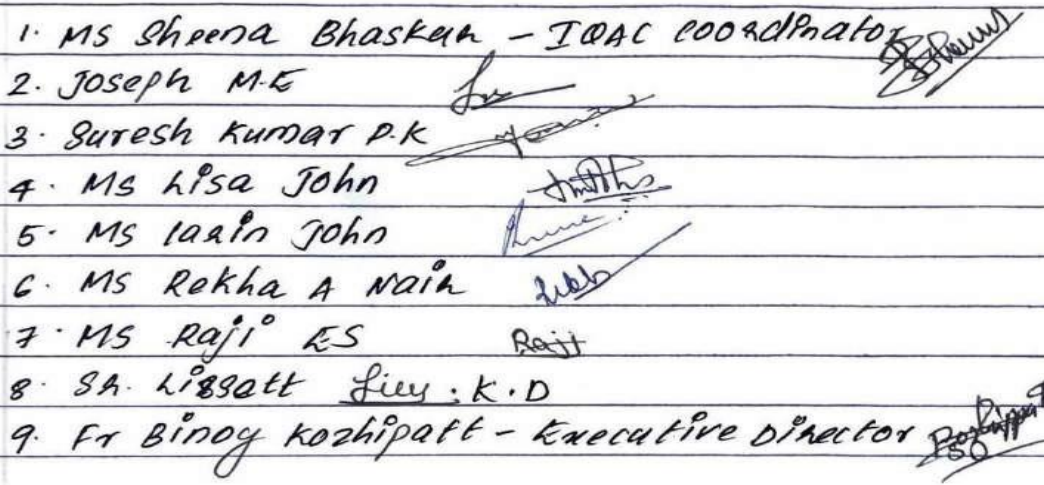 1. MS Sheena Bhaskar - IQAC coordinator
2. Joseph M.E
3. Suresh Kumar P.K
4. MS Lisa John
5. MS John
6. MS Rekha A Nair
7. MS Raji ES Raji
8. Sr. Lissatt K.D
9. Fr Binoy Kozhipatt - Executive Director